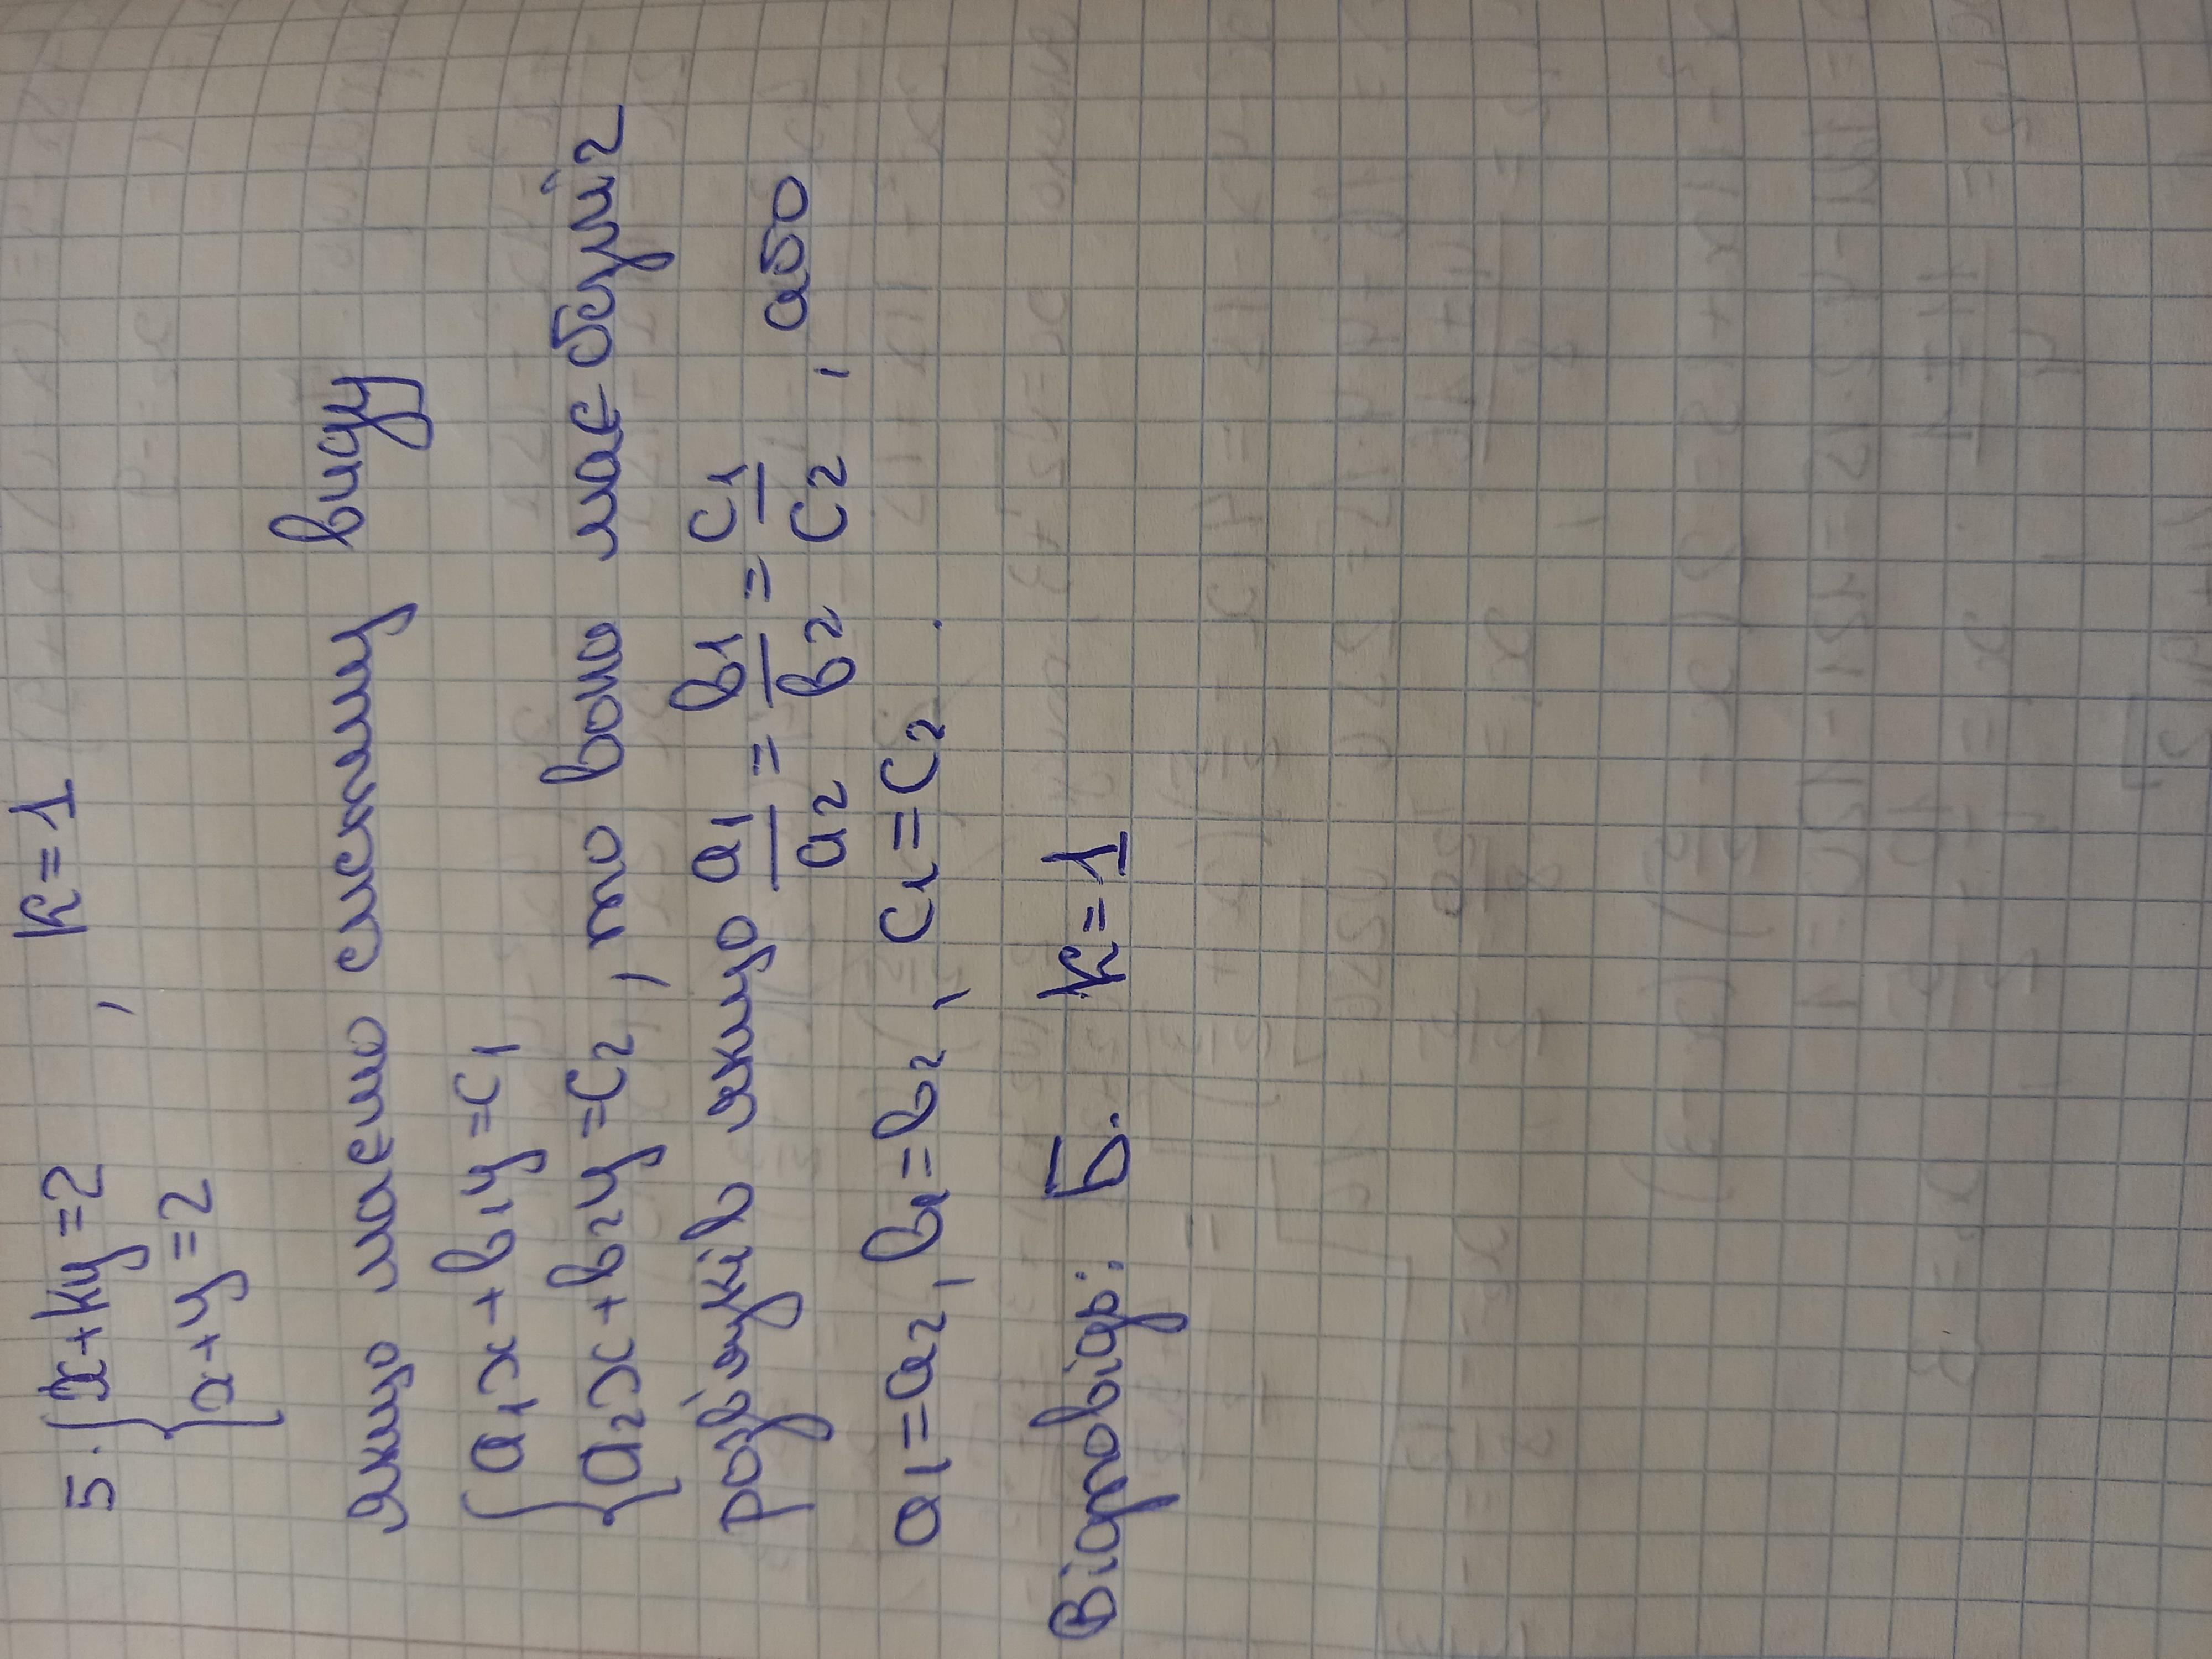 5. { x+ky=2 , k=1
{ x+y=2
якщо маємо систему виду
{ a₁x+b₁y=c₁
{ a₂x+b₂y=c₂, то вона має безліч
розв'язків якщо a₁/a₂ = b₁/b₂ = c₁/c₂, або
a₁=a₂, b₁=b₂, c₁=c₂.
Відповідь: Б. k=1